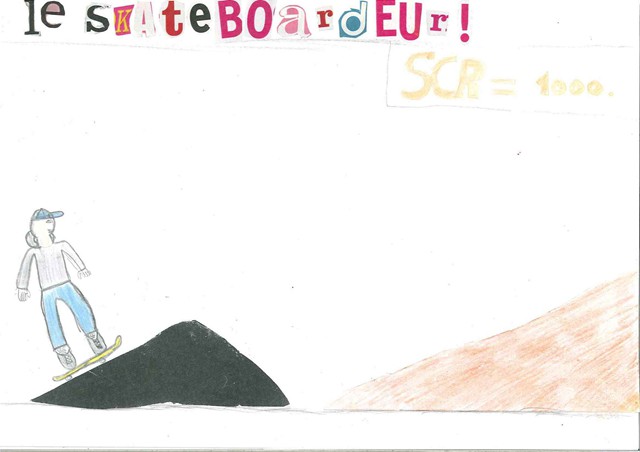 le sKAteBOardEUr!
SCR = 1000.